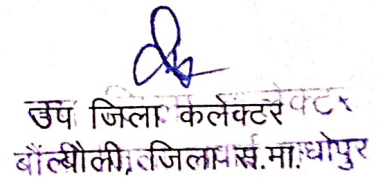 उप जिला कलेक्टर
बौंली, जिला स.मा.धोपुर